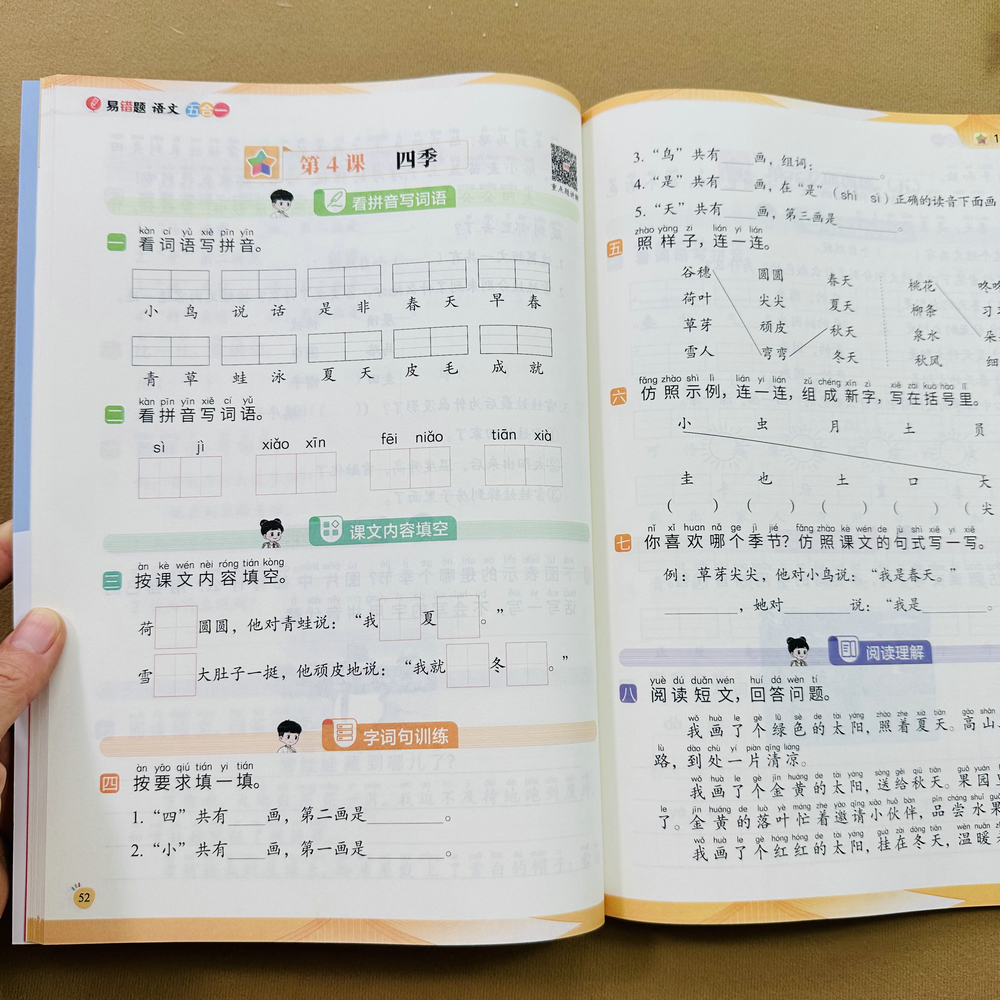 易错题 语文 五合一
第4课 四季
重点随讲册
看拼音写词语
kàn cí yǔ xiě pīn yīn
一 看词语写拼音。
小鸟 说话 是非 春天 早春
青草 蛙泳 夏天 皮毛 成就
kàn pīn yīn xiě cí yǔ
二 看拼音写词语。
sì jì xiǎo xīn fēi niǎo tiān xià
课文内容填空
àn kè wén nèi róng tián kòng
三 按课文内容填空。
荷 圆圆,他对青蛙说:“我 夏 。”
雪 大肚子一挺,他顽皮地说:“我就 冬 。”
字词句训练
àn yāo qiú tián yi tián
四 按要求填一填。
1.“四”共有____画,第二画是________。
2.“小”共有____画,第一画是________。
52
3.“鸟”共有____画,组词:________。
4.“是”共有____画,在“是”(shì sì)正确的读音下面画
5.“天”共有____画,第三画是________。
zhào yàng zi lián yi lián
五 照样子,连一连。
谷穗 圆圆 春天 桃花
荷叶 尖尖 夏天 柳条
草芽 顽皮 秋天 泉水
雪人 弯弯 冬天 秋风 细
fǎng zhào shì lì lián yi lián zǔ chéng xīn zì xiě zài kuò hào lǐ
六 仿照示例,连一连,组成新字,写在括号里。
小 虫 月 土 员
圭 也 土 口 大
( ) ( ) ( ) ( ) (尖
nǐ xǐ huan nǎ ge jì jié fǎng zhào kè wén de jù shì xiě yi xiě
七 你喜欢哪个季节?仿照课文的句式写一写。
例:草芽尖尖,他对小鸟说:“我是春天。”
________,她对________说:“我是________。
阅读理解
yuè dú duǎn wén huí dá wèn tí
八 阅读短文,回答问题。
wǒ huà le gè lǜ sè de tài yáng zhào zhe xià tiān gāo shān
我画了个绿色的太阳,照着夏天。高山、
lù dào chù yí piàn qīng liáng
路,到处一片清凉。
wǒ huà le gè jīn huáng de tài yáng sòng gěi qiū tiān guǒ yuán
我画了个金黄的太阳,送给秋天。果园里
le jīn huáng de luò yè máng zhe yāo qǐng xiǎo huǒ bàn pǐn cháng shuǐ guǒ
了。金黄的落叶忙着邀请小伙伴,品尝水果
wǒ huà le gè hóng hóng de tài yáng guà zài dōng tiān wēn nuǎn
我画了个红红的太阳,挂在冬天,温暖